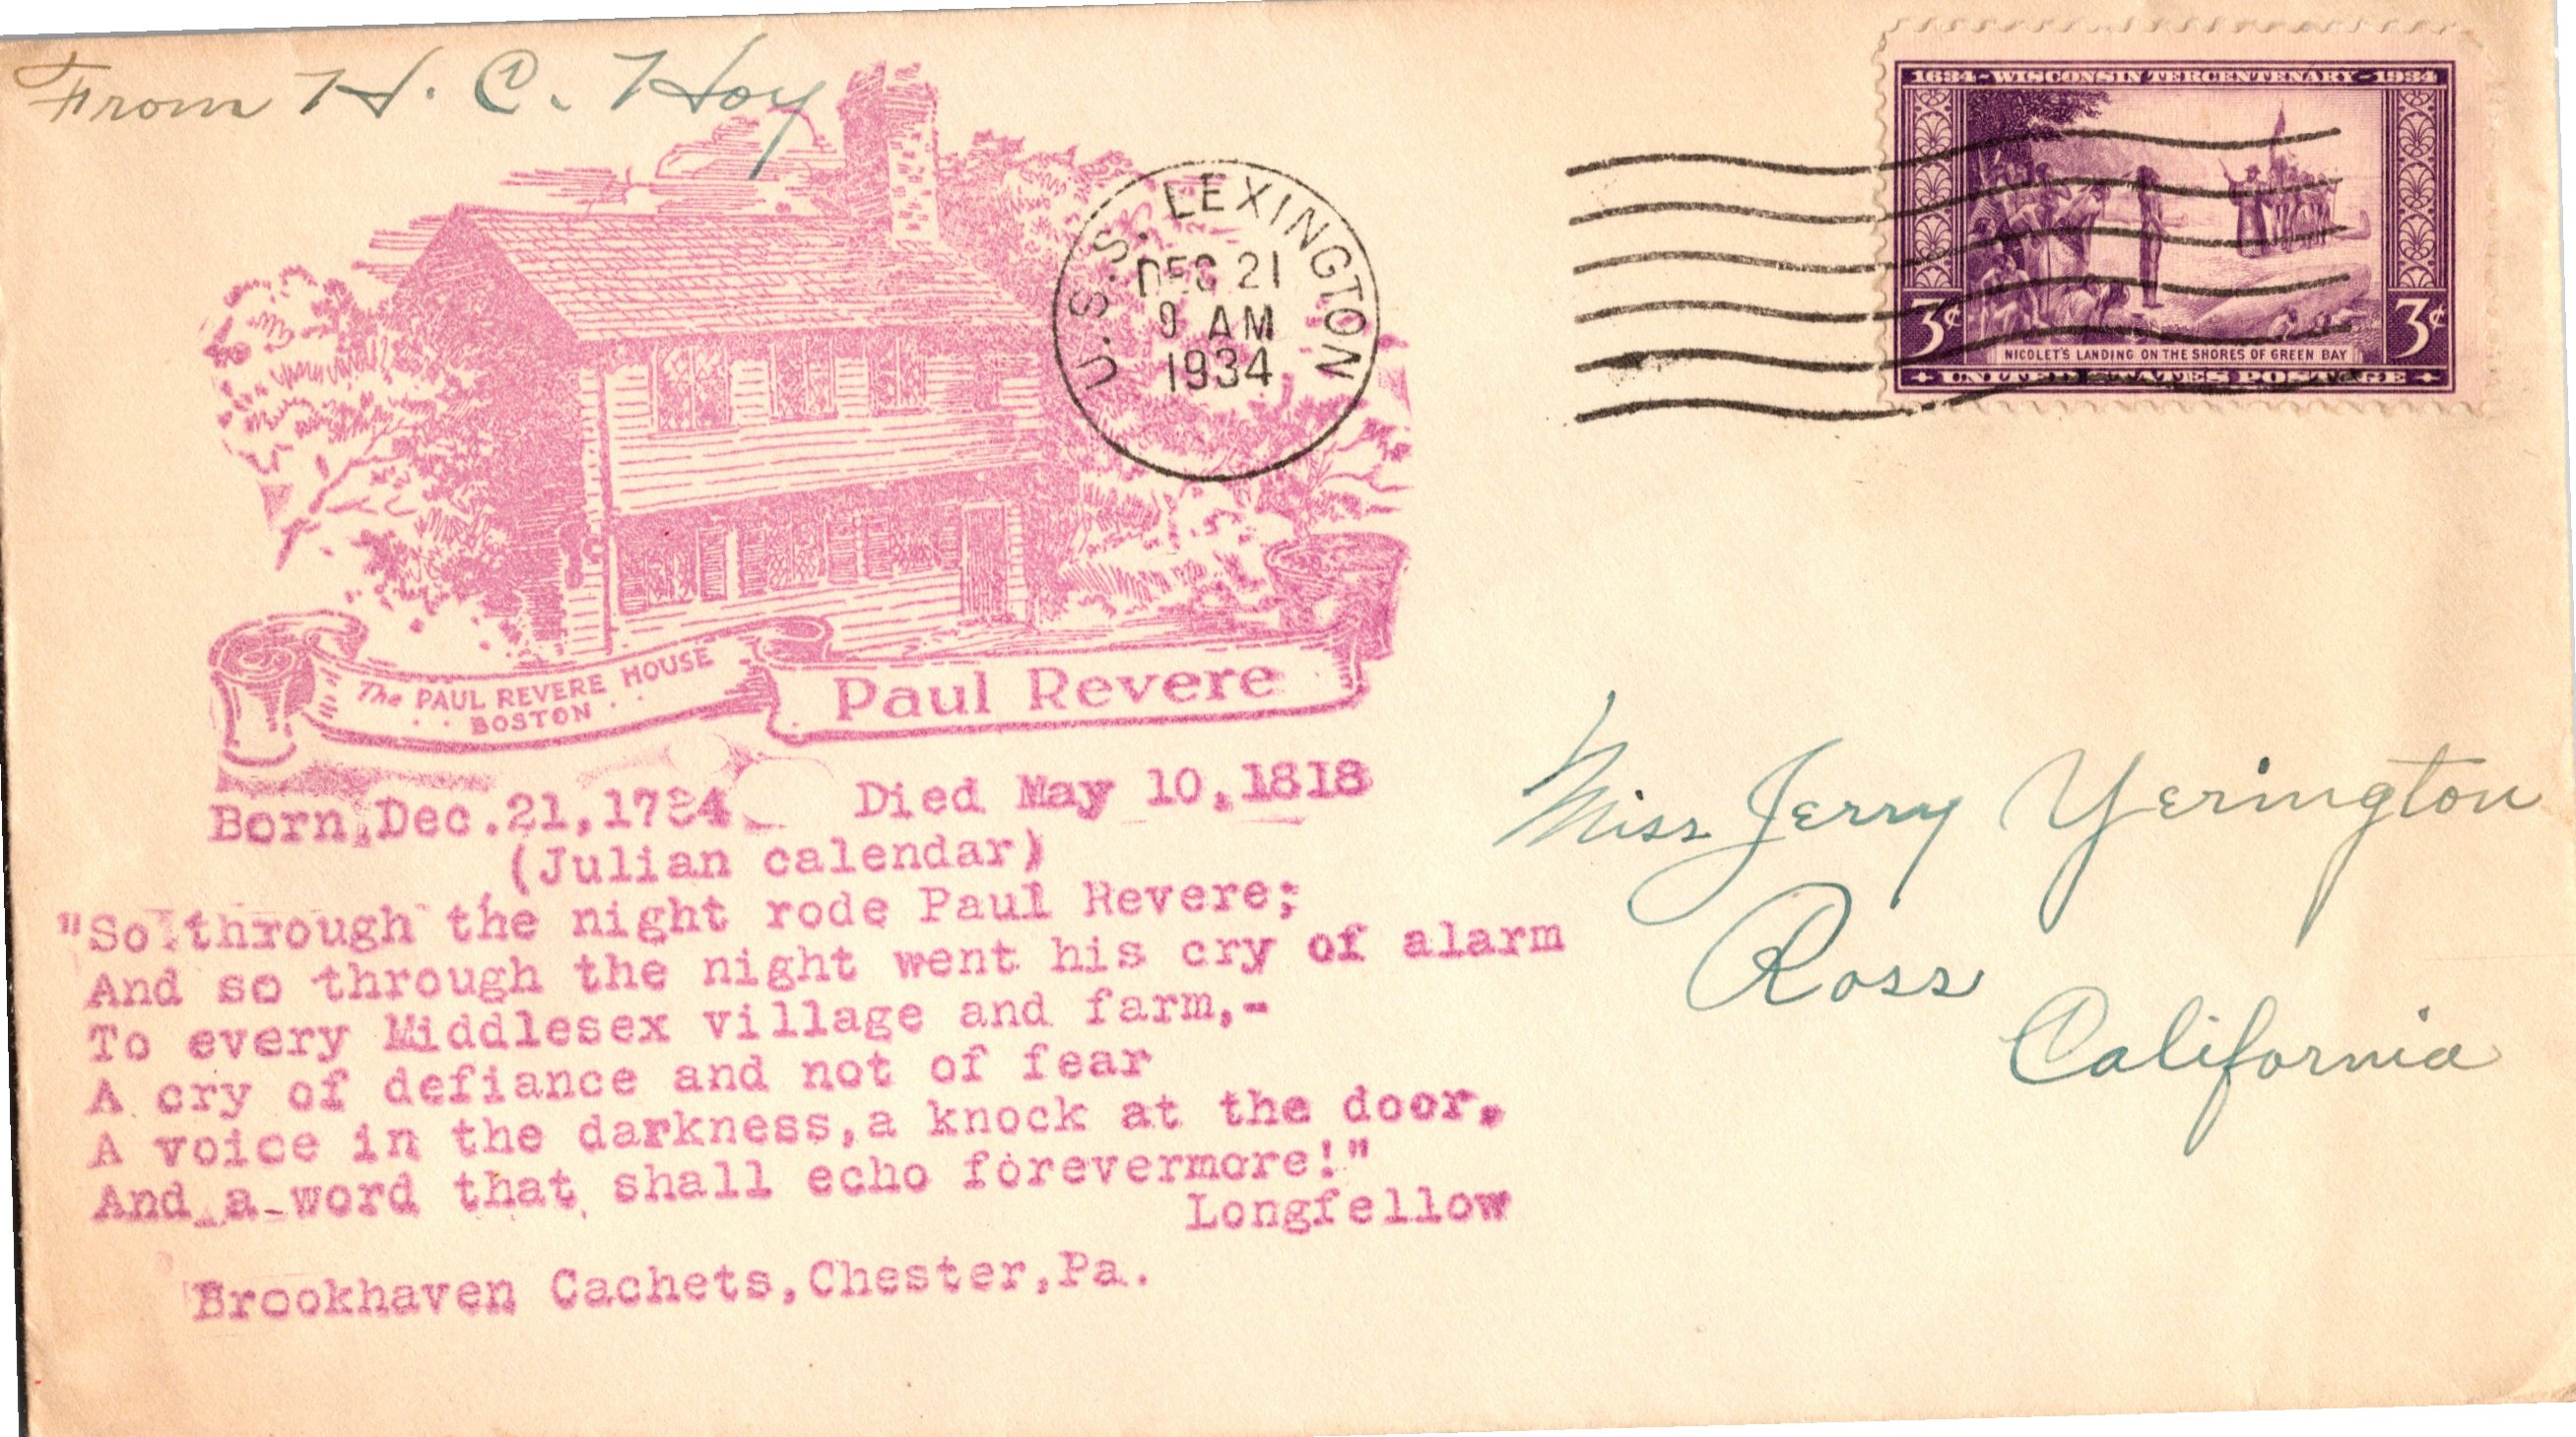 From H. C. Hoy
U.S.S. LEXINGTON
DEC 21
9 AM
1934
1634-WISCONSIN TERCENTENARY-1934
3¢ 3¢
NICOLET'S LANDING ON THE SHORES OF GREEN BAY
UNITED STATES POSTAGE
The PAUL REVERE HOUSE
BOSTON
Paul Revere
Born,Dec.21,1734 Died May 10,1818
(Julian calendar)
"So through the night rode Paul Revere;
And so through the night went his cry of alarm
To every Middlesex village and farm,-
A cry of defiance and not of fear
A voice in the darkness,a knock at the door,
And a word that shall echo forevermore!"
Longfellow
Brookhaven Cachets,Chester,Pa.
Miss Jerry Yerington
Ross
California